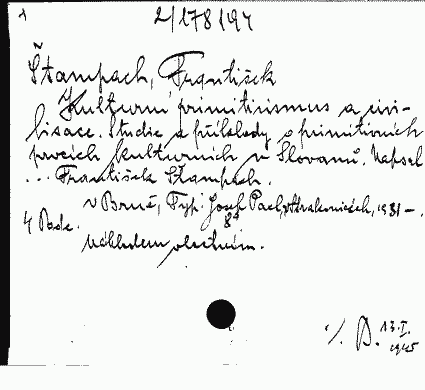 2/178/94
Štampach, František
Kulturní primitivismus a civi-
lisace. Studie a příklady o primitivních
prvcích kulturních u Slovanů. Napsal
... František Štampach.
V Brně, Typ. Josef Pacl, v Strakonicích, 1931 –.
8°
4 Bde.
Nákladem vlastním.
13.I.
1945